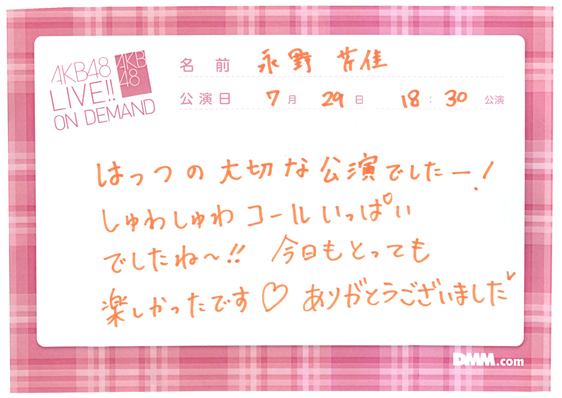 AKB48
LIVE!!
ON DEMAND
AKB
48
名前 永野 芹佳
公演日 7月 29日 18:30 公演
はっつの大切な公演でしたー!
しゅわしゅわコールいっぱい
でしたね〜!! 今日もとっても
楽しかったです♡ ありがとうございました
DMM.com